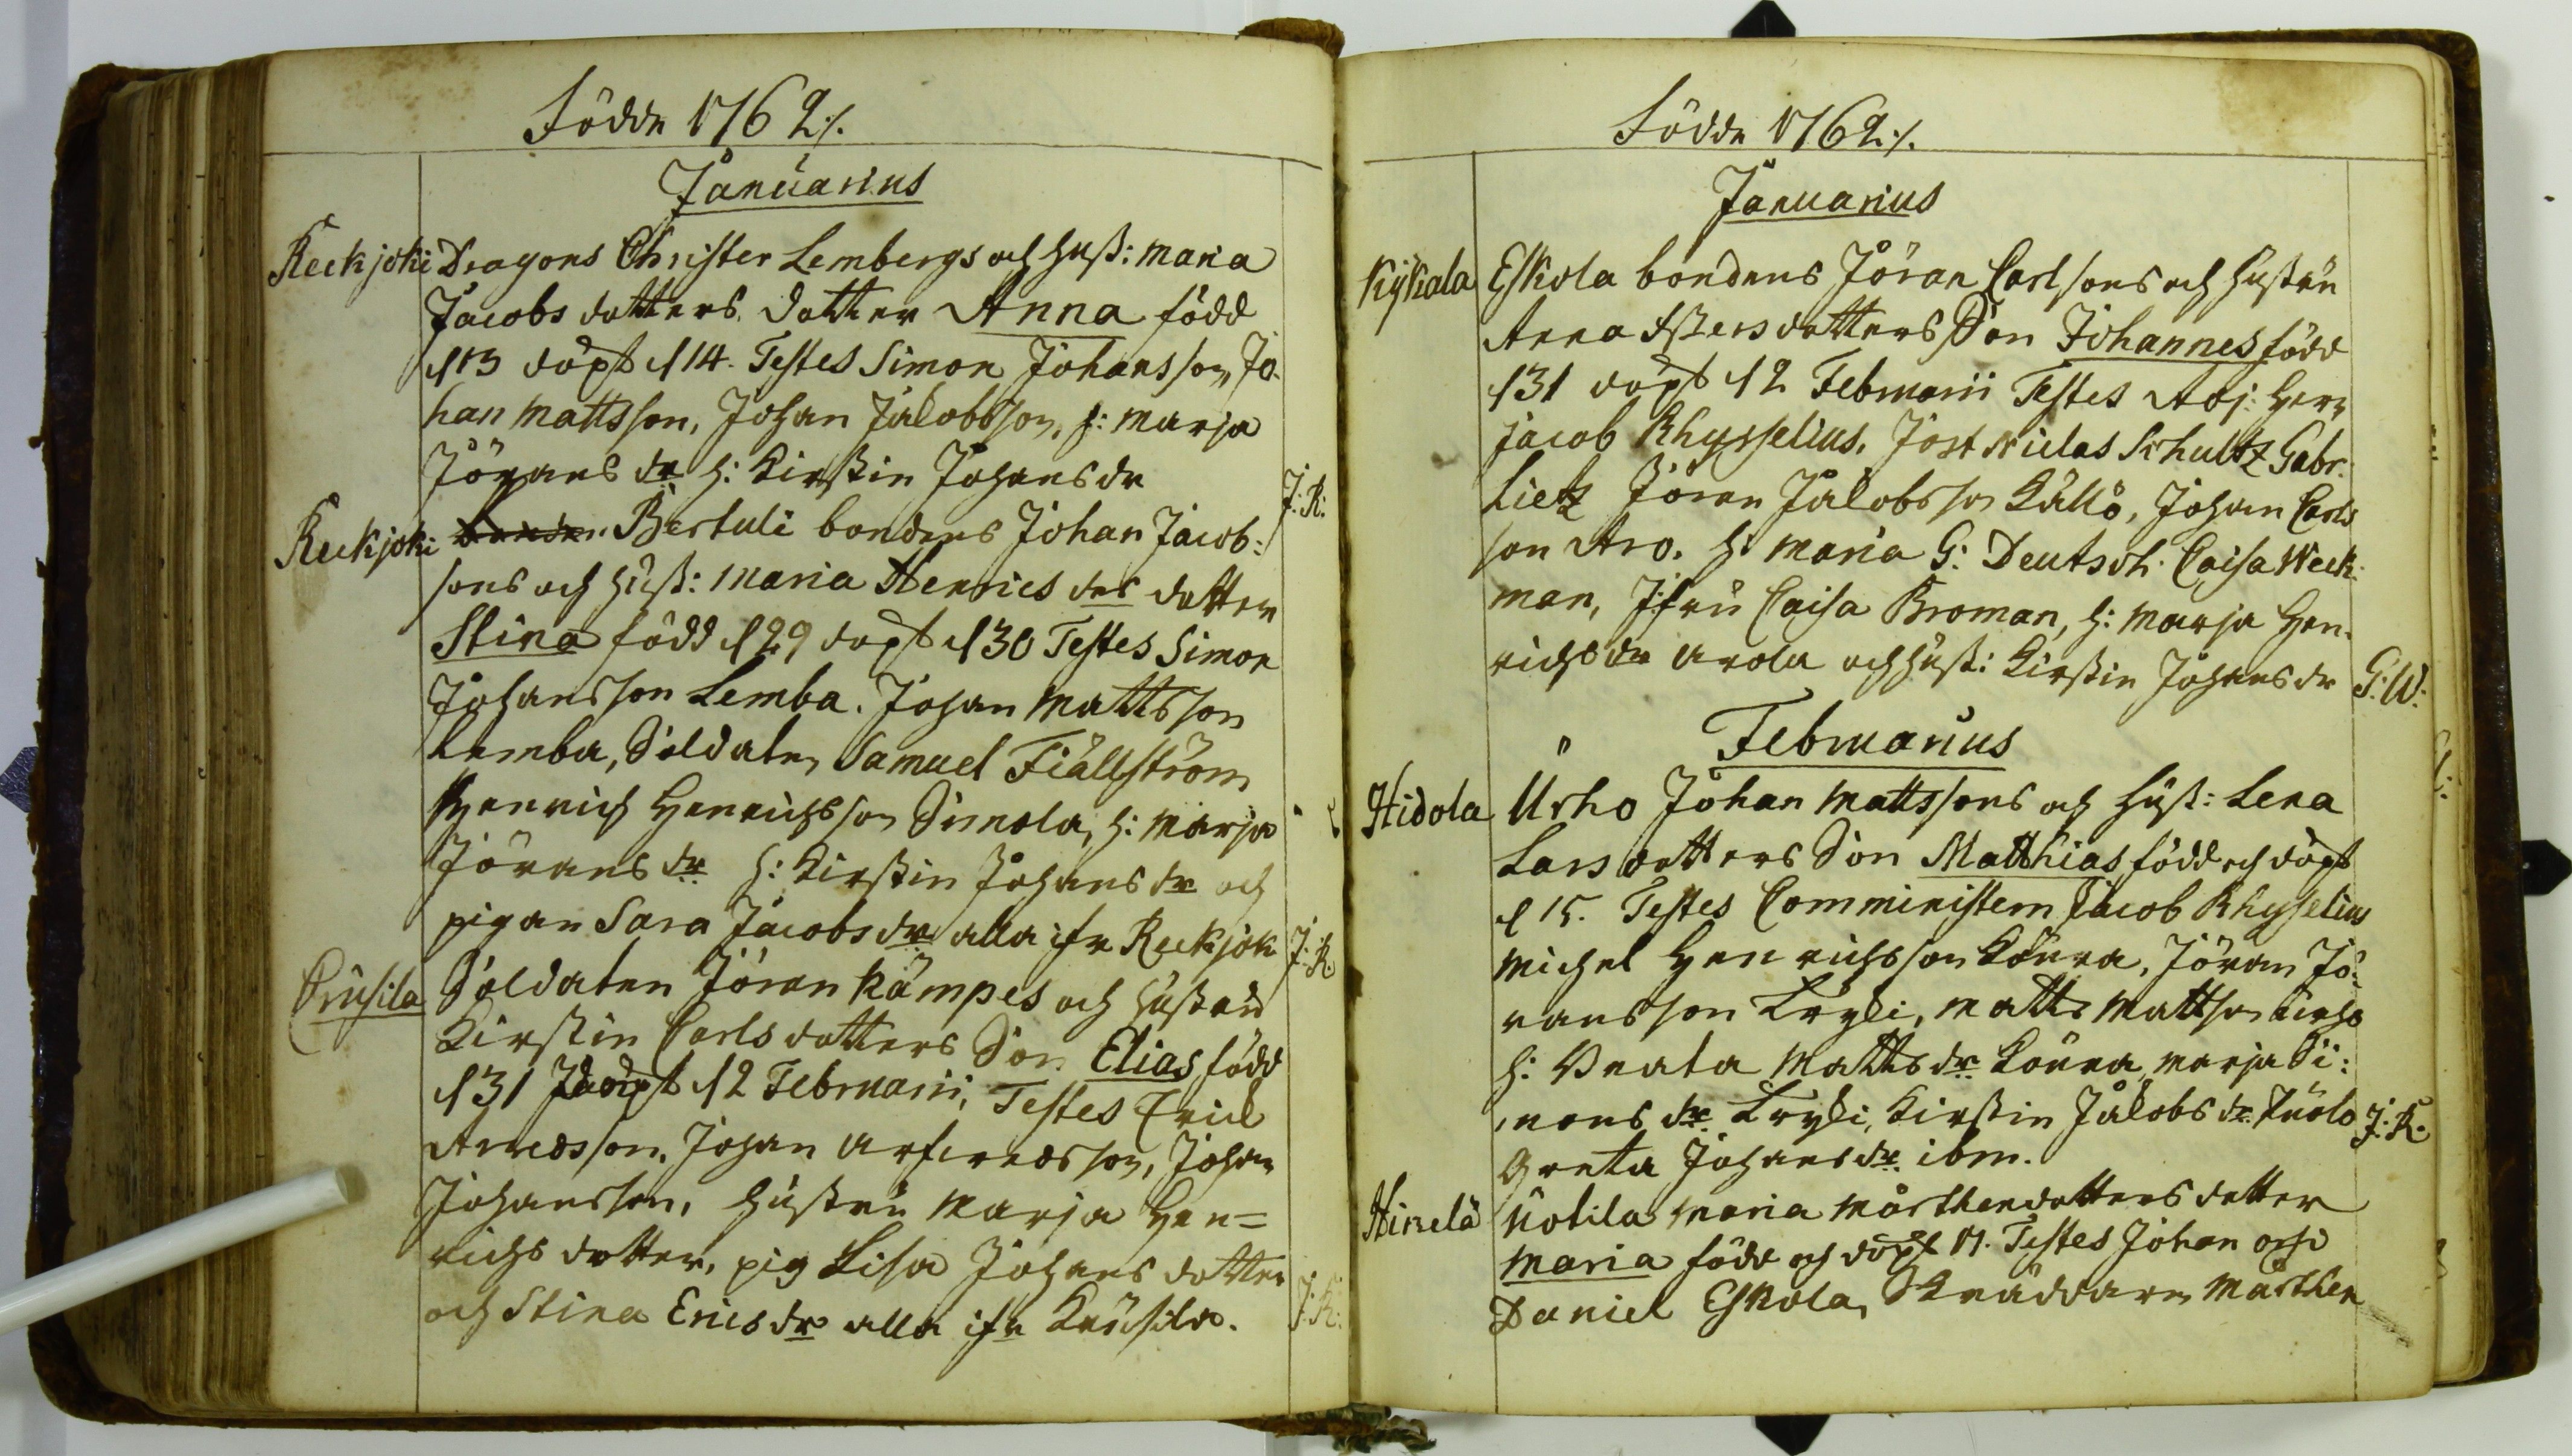 Födde 1762 ⁒.
Januarius
Reckjoki Dragons Christer Lembergs och Hust: Maria
Jacobs dotters. Dotter Anna född
d 13 döpt d 14. Testes Simon Johansson, Jo-
han Mattsson, Johan Jakobsson, h: Marja
Jörans dr h: Kirstin Johans dr
J: R:
Reckjoki Bertuli bondens Johan Jacob:
sons och Hust: Maria Henrics drs dotter
Stina född d 29 döpt d 30 Testes Simon
Johansson Lemba. Johan Mattsson
Lemba, Soldaten Samuel Fiällström
Henrich Henrichsson Simola, h: Marja
Jörans dr h: Kirstin Johans dr och
pigan Sara Jacobs dr alla ifr Reckjok J: R:
Crusila Soldaten Jöran Kämpes och Hustru
Kirstin Carls dotters Son Elias född
d 31 döpt d 2 Februarii, Testes Erick
Johan Johan
Johansson, Hustru Marja Hen=
richs dotter, pig Lisa Johans dotter
och Stina Erics dr alla ifr Krusila. J: R:
Födde 1762 ⁒.
Januarius
Kÿkala Eskola bondens Jöran Carlsons och Hustru
Anna dotters Son Johannes född
d 31 döpt d 2 Februarii Testes Adj: Herr
Jacob Rhyselius, Jost Niclas Schultz Gabr:
Lietz Jöran Jakobsson Källö, Johan Carls
son Aro. h: Maria G: Deutsch. Caisa Weck-
man, Jfru Caisa Broman, h: Marja Hen-
richs dr Arola och Hust: Kirstin Johans dr G: W:
Februarius
Hidola Urho Johan Mattssons och Hust: Lena
Lars dotters Son Matthias född och döpt
d 15. Testes Comministern Jacob Rhyselius
Michel Henrichsson Jöran Jö-
ransson Kryli, Matts Mattsson Urho
h: Beata Matts dr Marja Si:
mons dr Kryli, Kirstin Jakobs dr J: R.
Greta Johans dr ibm.
Hinelä Uotila Maria Mårthendotters dotter
Maria född och döpt 17. Testes Johan och
Daniel Eskola, Skräddaren Mårthen